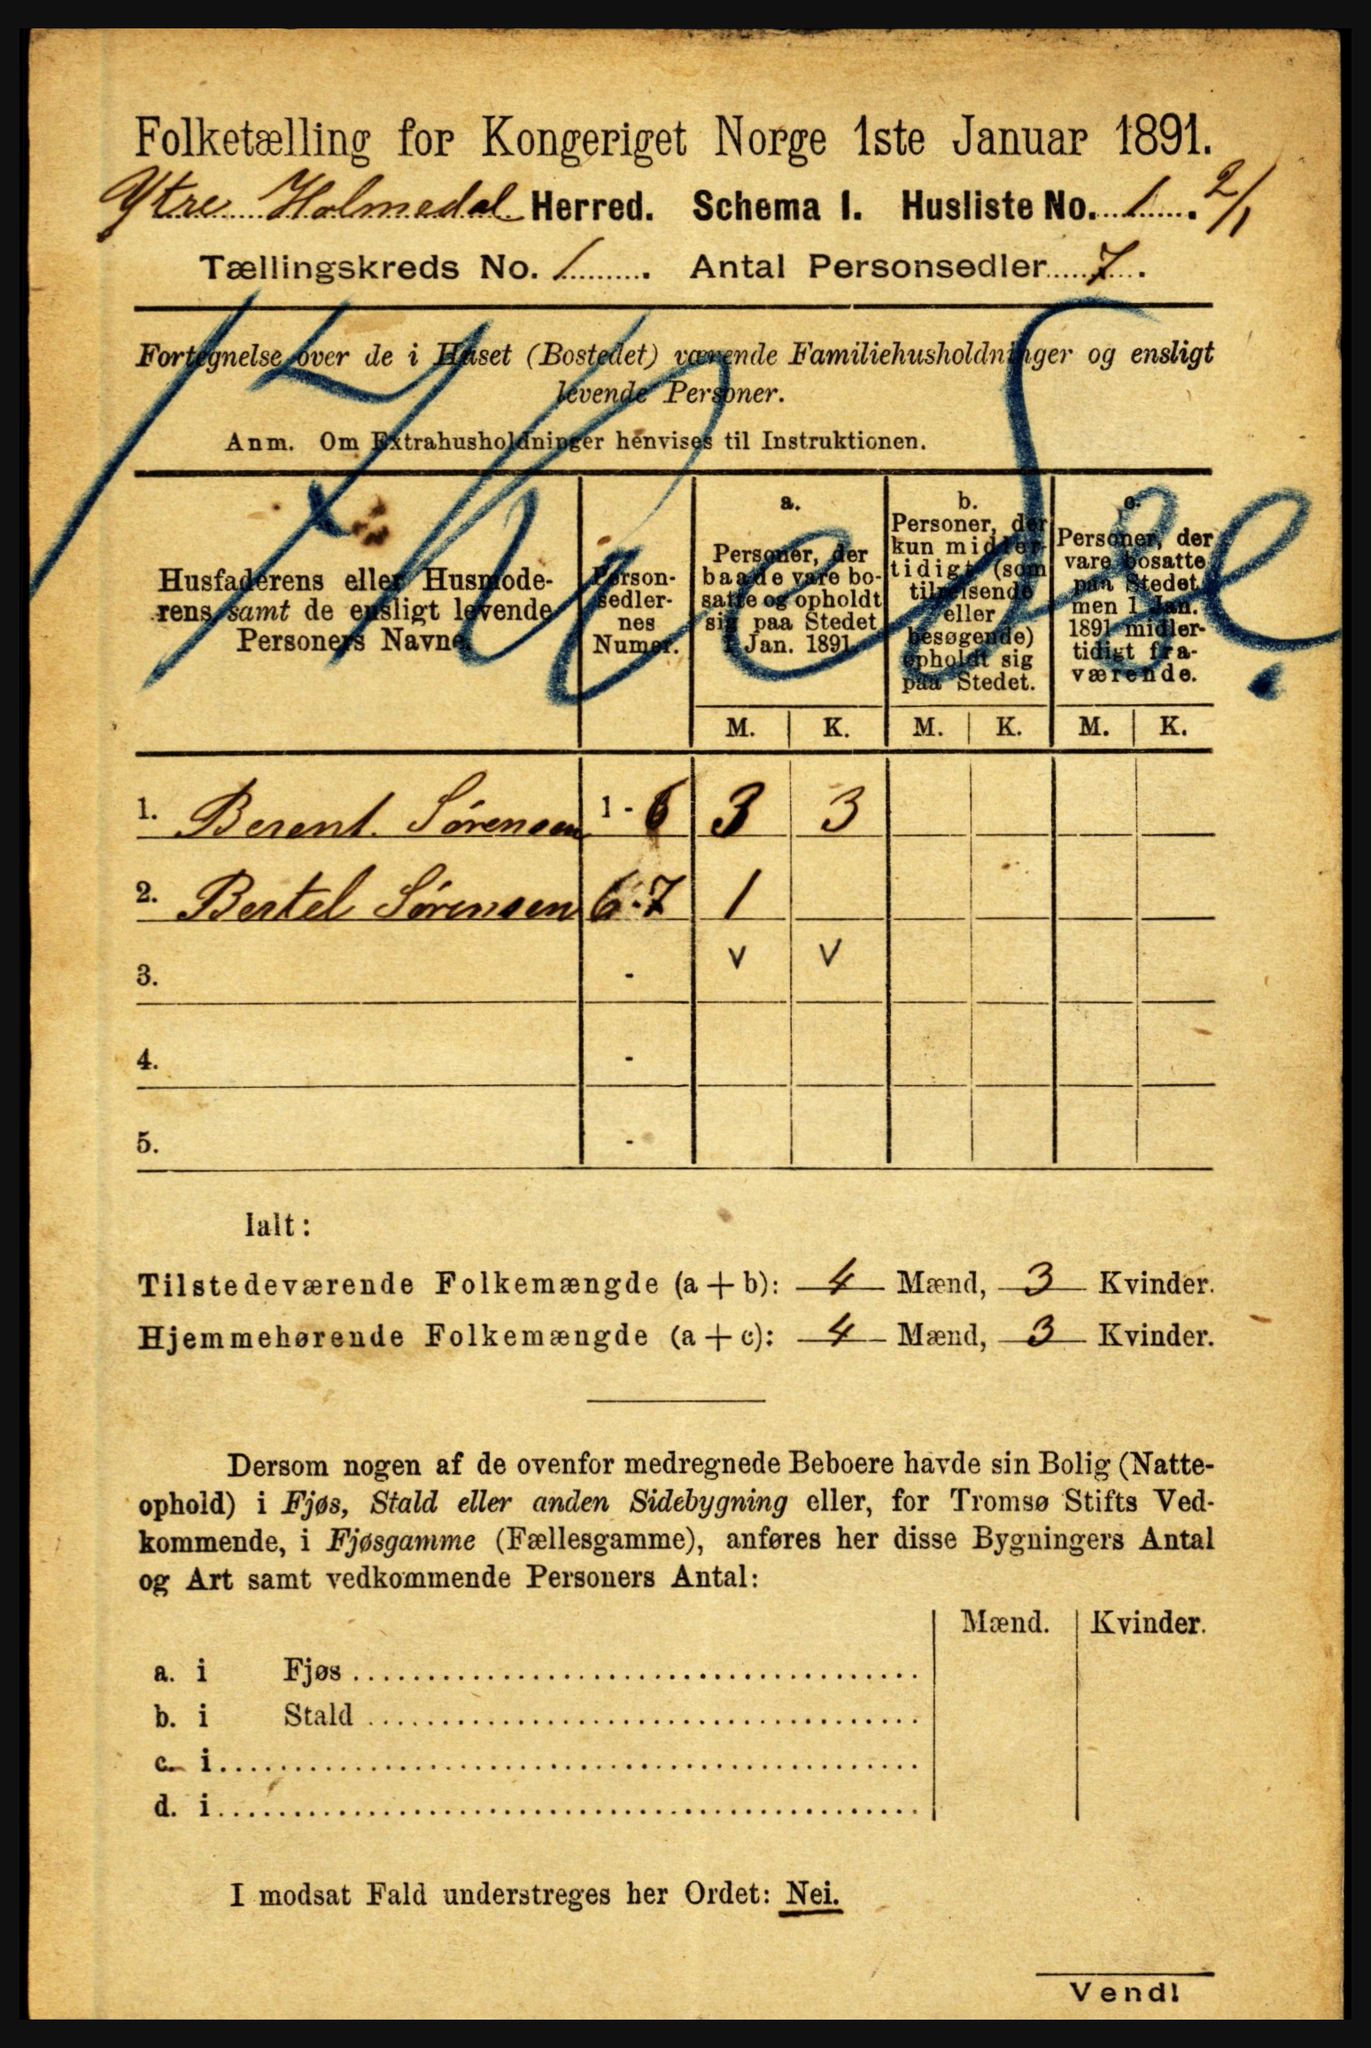 Folketælling for Kongeriget Norge 1ste Januar 1891.
Ytre Holmedal Herred. Schema I. Husliste No. 1. 2/1
Tællingskreds No. 1. Antal Personsedler 7.
Fortegnelse over de i Huset (Bostedet) værende Familiehusholdninger og ensligt
levende Personer.
Anm. Om Extrahusholdninger henvises til Instruktionen.
Husfaderens eller Husmode-
rens samt de ensligt levende
Personers Navne.
Person-
sedler-
nes
Numer.
a.
Personer, der
baade vare bo-
satte og opholdt
sig paa Stedet
1 Jan. 1891
b.
Personer, der
kun midler-
tidigt (som
tilreisende
eller
besøgende)
opholdt sig
paa Stedet.
c.
Personer, der
vare bosatte
paa Stedet
men 1 Jan.
1891 midler-
tidigt fra-
værende.
M. K. M. K. M. K.
1. Berent Sørensen 1 - 6 3 3
2. Bertel Sørensen 6-7 1
3. - v v
4. -
5. -
Ialt:
Tilstedeværende Folkemængde (a + b): 4 Mænd, 3 Kvinder.
Hjemmehørende Folkemængde (a + c): 4 Mænd, 3 Kvinder.
Dersom nogen af de ovenfor medregnede Beboere havde sin Bolig (Natte-
ophold) i Fjøs, Stald eller anden Sidebygning eller, for Tromsø Stifts Ved-
kommende, i Fjøsgamme (Fællesgamme), anføres her disse Bygningers Antal
og Art samt vedkommende Personers Antal:
Mænd. Kvinder.
a. i Fjøs
b. i Stald
c. i
d. i
I modsat Fald understreges her Ordet: Nei.
Vend!